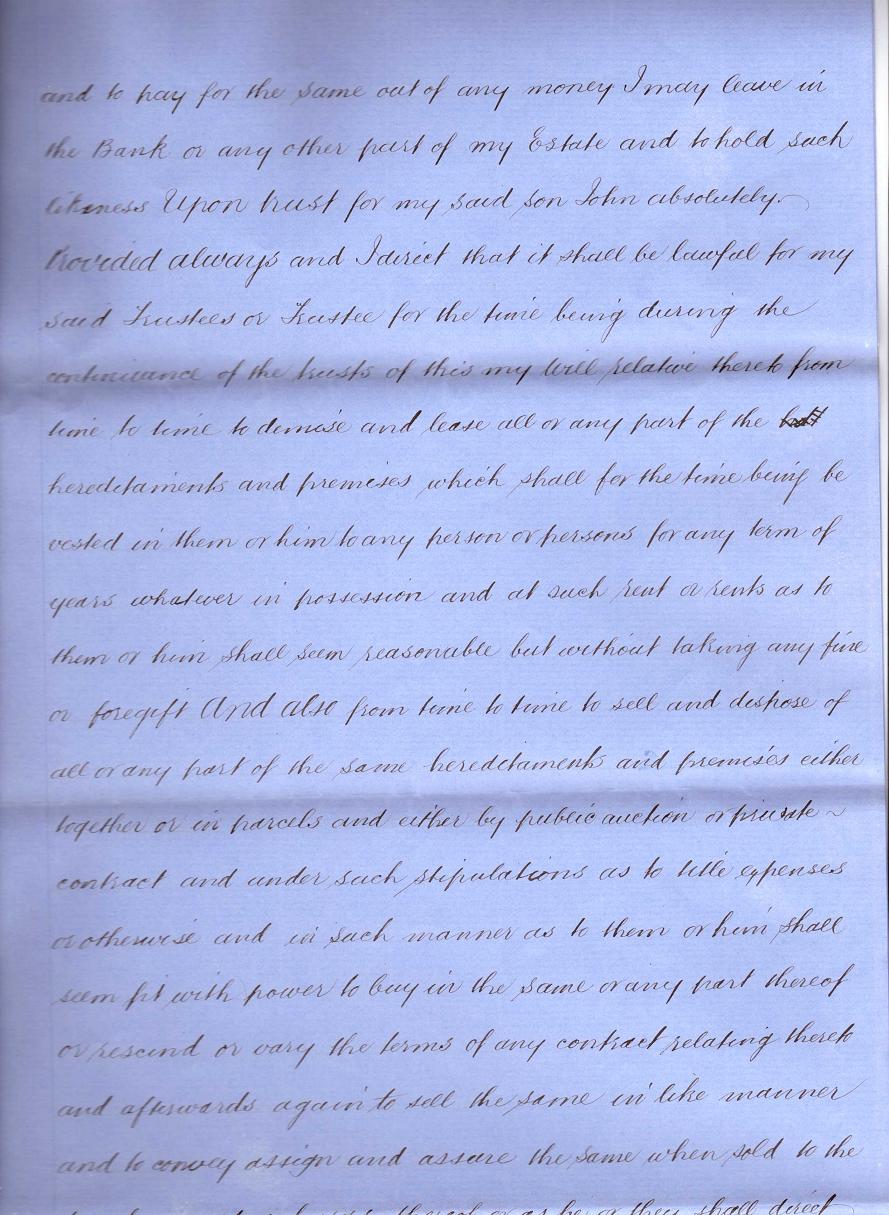 and to pay for the same out of any money I may leave in
the Bank or any other part of my Estate and to hold such
likeness Upon trust for my said son John absolutely.
Provided always and I direct that it shall be lawful for my
said Trustees or Trustee for the time being during the
continuance of the trusts of this my Will relative thereto from
time to time to demise and lease all or any part of the
hereditaments and premises which shall for the time being be
vested in them or him to any person or persons for any term of
years whatever in possession and at such rent or rents as to
them or him shall seem reasonable but without taking any fine
or foregift And also from time to time to sell and dispose of
all or any part of the same hereditaments and premises either
together or in parcels and either by public auction or private ~
contract and under such stipulations as to title expenses
or otherwise and in such manner as to them or him shall
seem fit with power to buy in the same or any part thereof
or rescind or vary the terms of any contract relating thereto
and afterwards again to sell the same in like manner
and to convey assign and assure the same when sold to the
thereof or as he or they shall direct